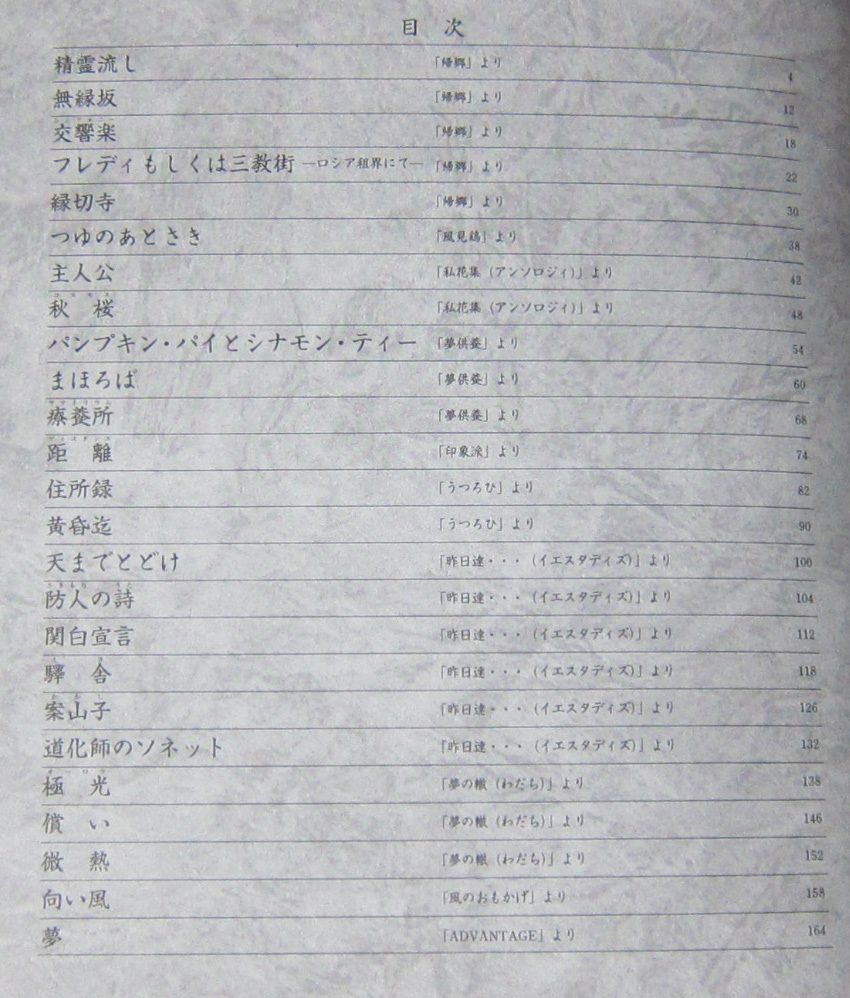 目 次
精霊流し 「帰郷」より 4
無縁坂 「帰郷」より 12
交響楽 「帰郷」より 18
フレディもしくは三教街 ―ロシア租界にて― 「帰郷」より 22
縁切寺 「帰郷」より 30
つゆのあとさき 「風見鶏」より 38
主人公 「私花集（アンソロジィ）」より 42
秋 桜 「私花集（アンソロジィ）」より 48
パンプキン・パイとシナモン・ティー 「夢供養」より 54
まほろば 「夢供養」より 60
療養所 「夢供養」より 68
距 離 「印象派」より 74
住所録 「うつろひ」より 82
黄昏迄 「うつろひ」より 90
天までとどけ 「昨日達・・・（イエスタデイズ）」より 100
防人の詩 「昨日達・・・（イエスタデイズ）」より 104
関白宣言 「昨日達・・・（イエスタデイズ）」より 112
驛 舎 「昨日達・・・（イエスタデイズ）」より 118
案山子 「昨日達・・・（イエスタデイズ）」より 126
道化師のソネット 「昨日達・・・（イエスタデイズ）」より 132
極 光 「夢の轍（わだち）」より 138
償 い 「夢の轍（わだち）」より 146
微 熱 「夢の轍（わだち）」より 152
向い風 「風のおもかげ」より 158
夢 「ADVANTAGE」より 164